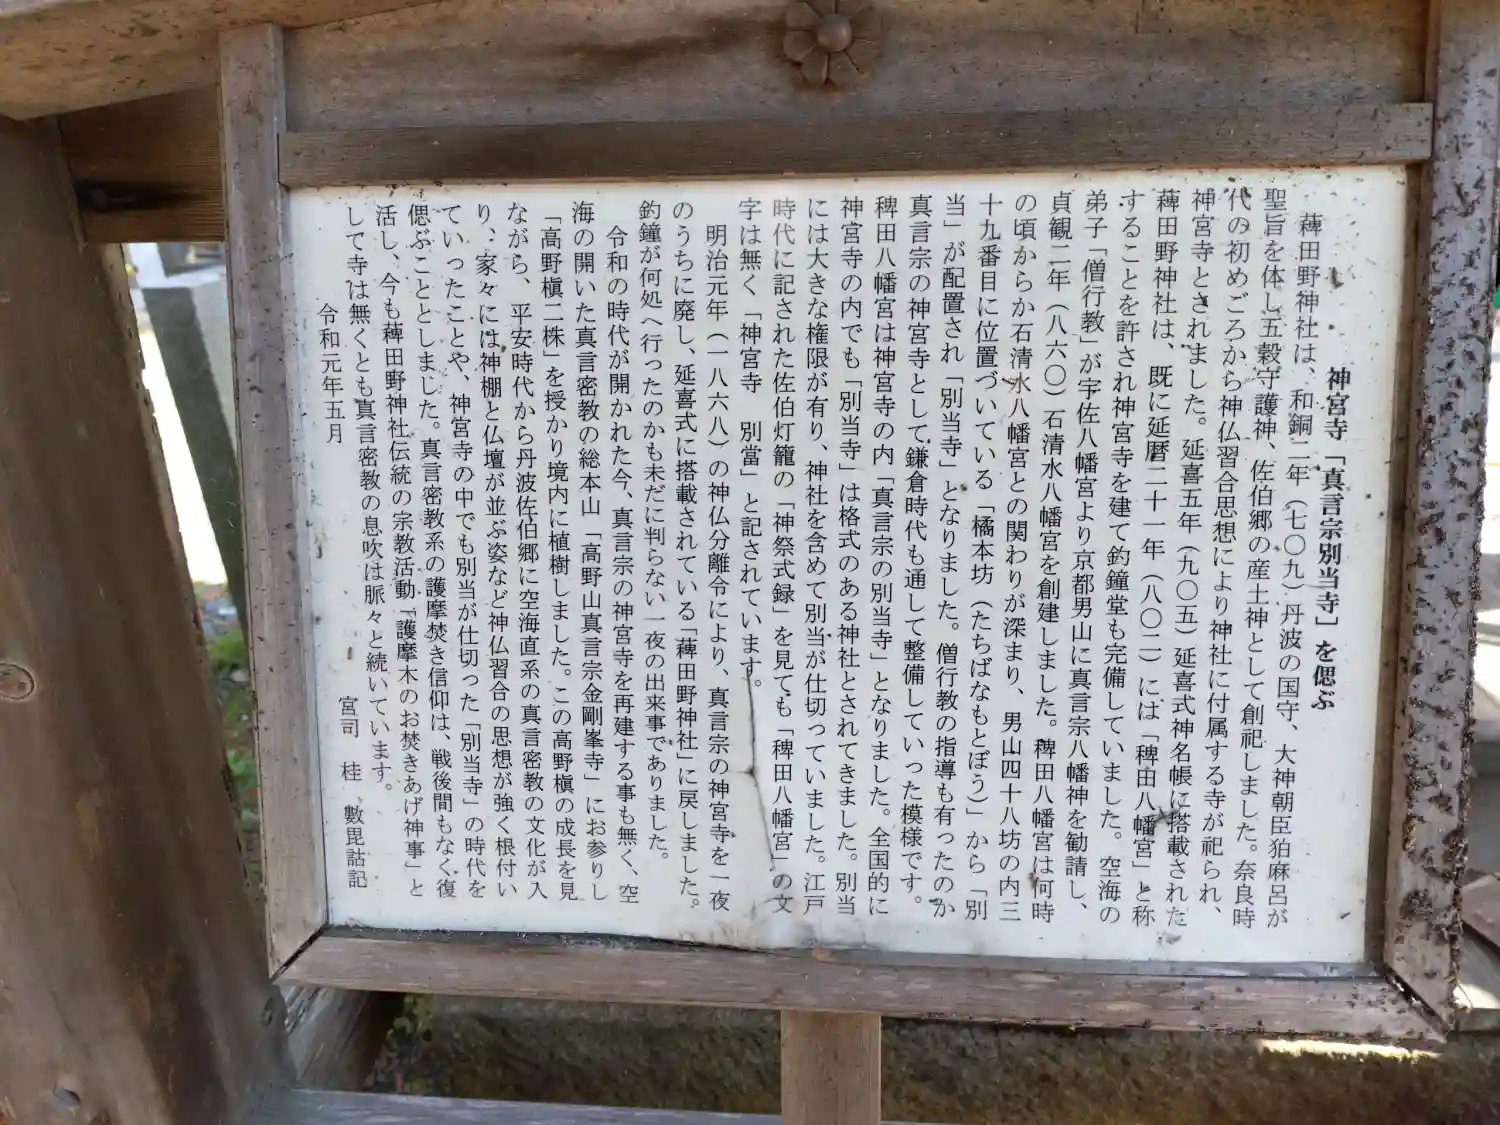 神宮寺「真言宗別当寺」を偲ぶ
薭田野神社は、和銅二年（七〇九）丹波の国守、大神朝臣狛麻呂が
聖旨を体し五穀守護神、佐伯郷の産土神として創祀しました。奈良時
代の初めごろから神仏習合思想により神社に付属する寺が祀られ、
神宮寺とされました。延喜五年（九〇五）延喜式神名帳に搭載された
薭田野神社は、既に延暦二十一年（八〇二）には「稗田八幡宮」と称
することを許され神宮寺を建て釣鐘堂も完備していました。空海の
弟子「僧行教」が宇佐八幡宮より京都男山に真言宗八幡神を勧請し、
貞観二年（八六〇）石清水八幡宮を創建しました。稗田八幡宮は何時
の頃からか石清水八幡宮との関わりが深まり、男山四十八坊の内三
十九番目に位置づいている「橘本坊（たちばなもとぼう）」から「別
当」が配置され「別当寺」となりました。僧行教の指導も有ったのか
真言宗の神宮寺として鎌倉時代も通して整備していった模様です。
稗田八幡宮は神宮寺の内「真言宗の別当寺」となりました。全国的に
神宮寺の内でも「別当寺」は格式のある神社とされてきました。別当
には大きな権限が有り、神社を含めて別当が仕切っていました。江戸
時代に記された佐伯灯籠の「神祭式録」を見ても「稗田八幡宮」の文
字は無く「神宮寺　別當」と記されています。
明治元年（一八六八）の神仏分離令により、真言宗の神宮寺を一夜
のうちに廃し、延喜式に搭載されている「薭田野神社」に戻しました。
釣鐘が何処へ行ったのかも未だに判らない一夜の出来事でありました。
令和の時代が開かれた今、真言宗の神宮寺を再建する事も無く、空
海の開いた真言密教の総本山「高野山真言宗金剛峯寺」にお参りし
「高野槇二株」を授かり境内に植樹しました。この高野槇の成長を見
ながら、平安時代から丹波佐伯郷に空海直系の真言密教の文化が入
り、家々には神棚と仏壇が並ぶ姿など神仏習合の思想が強く根付い
ていったことや、神宮寺の中でも別当が仕切った「別当寺」の時代を
偲ぶこととしました。真言密教系の護摩焚き信仰は、戦後間もなく復
活し、今も薭田野神社伝統の宗教活動「護摩木のお焚きあげ神事」と
して寺は無くとも真言密教の息吹は脈々と続いています。
令和元年五月
宮司　桂　數毘詁記